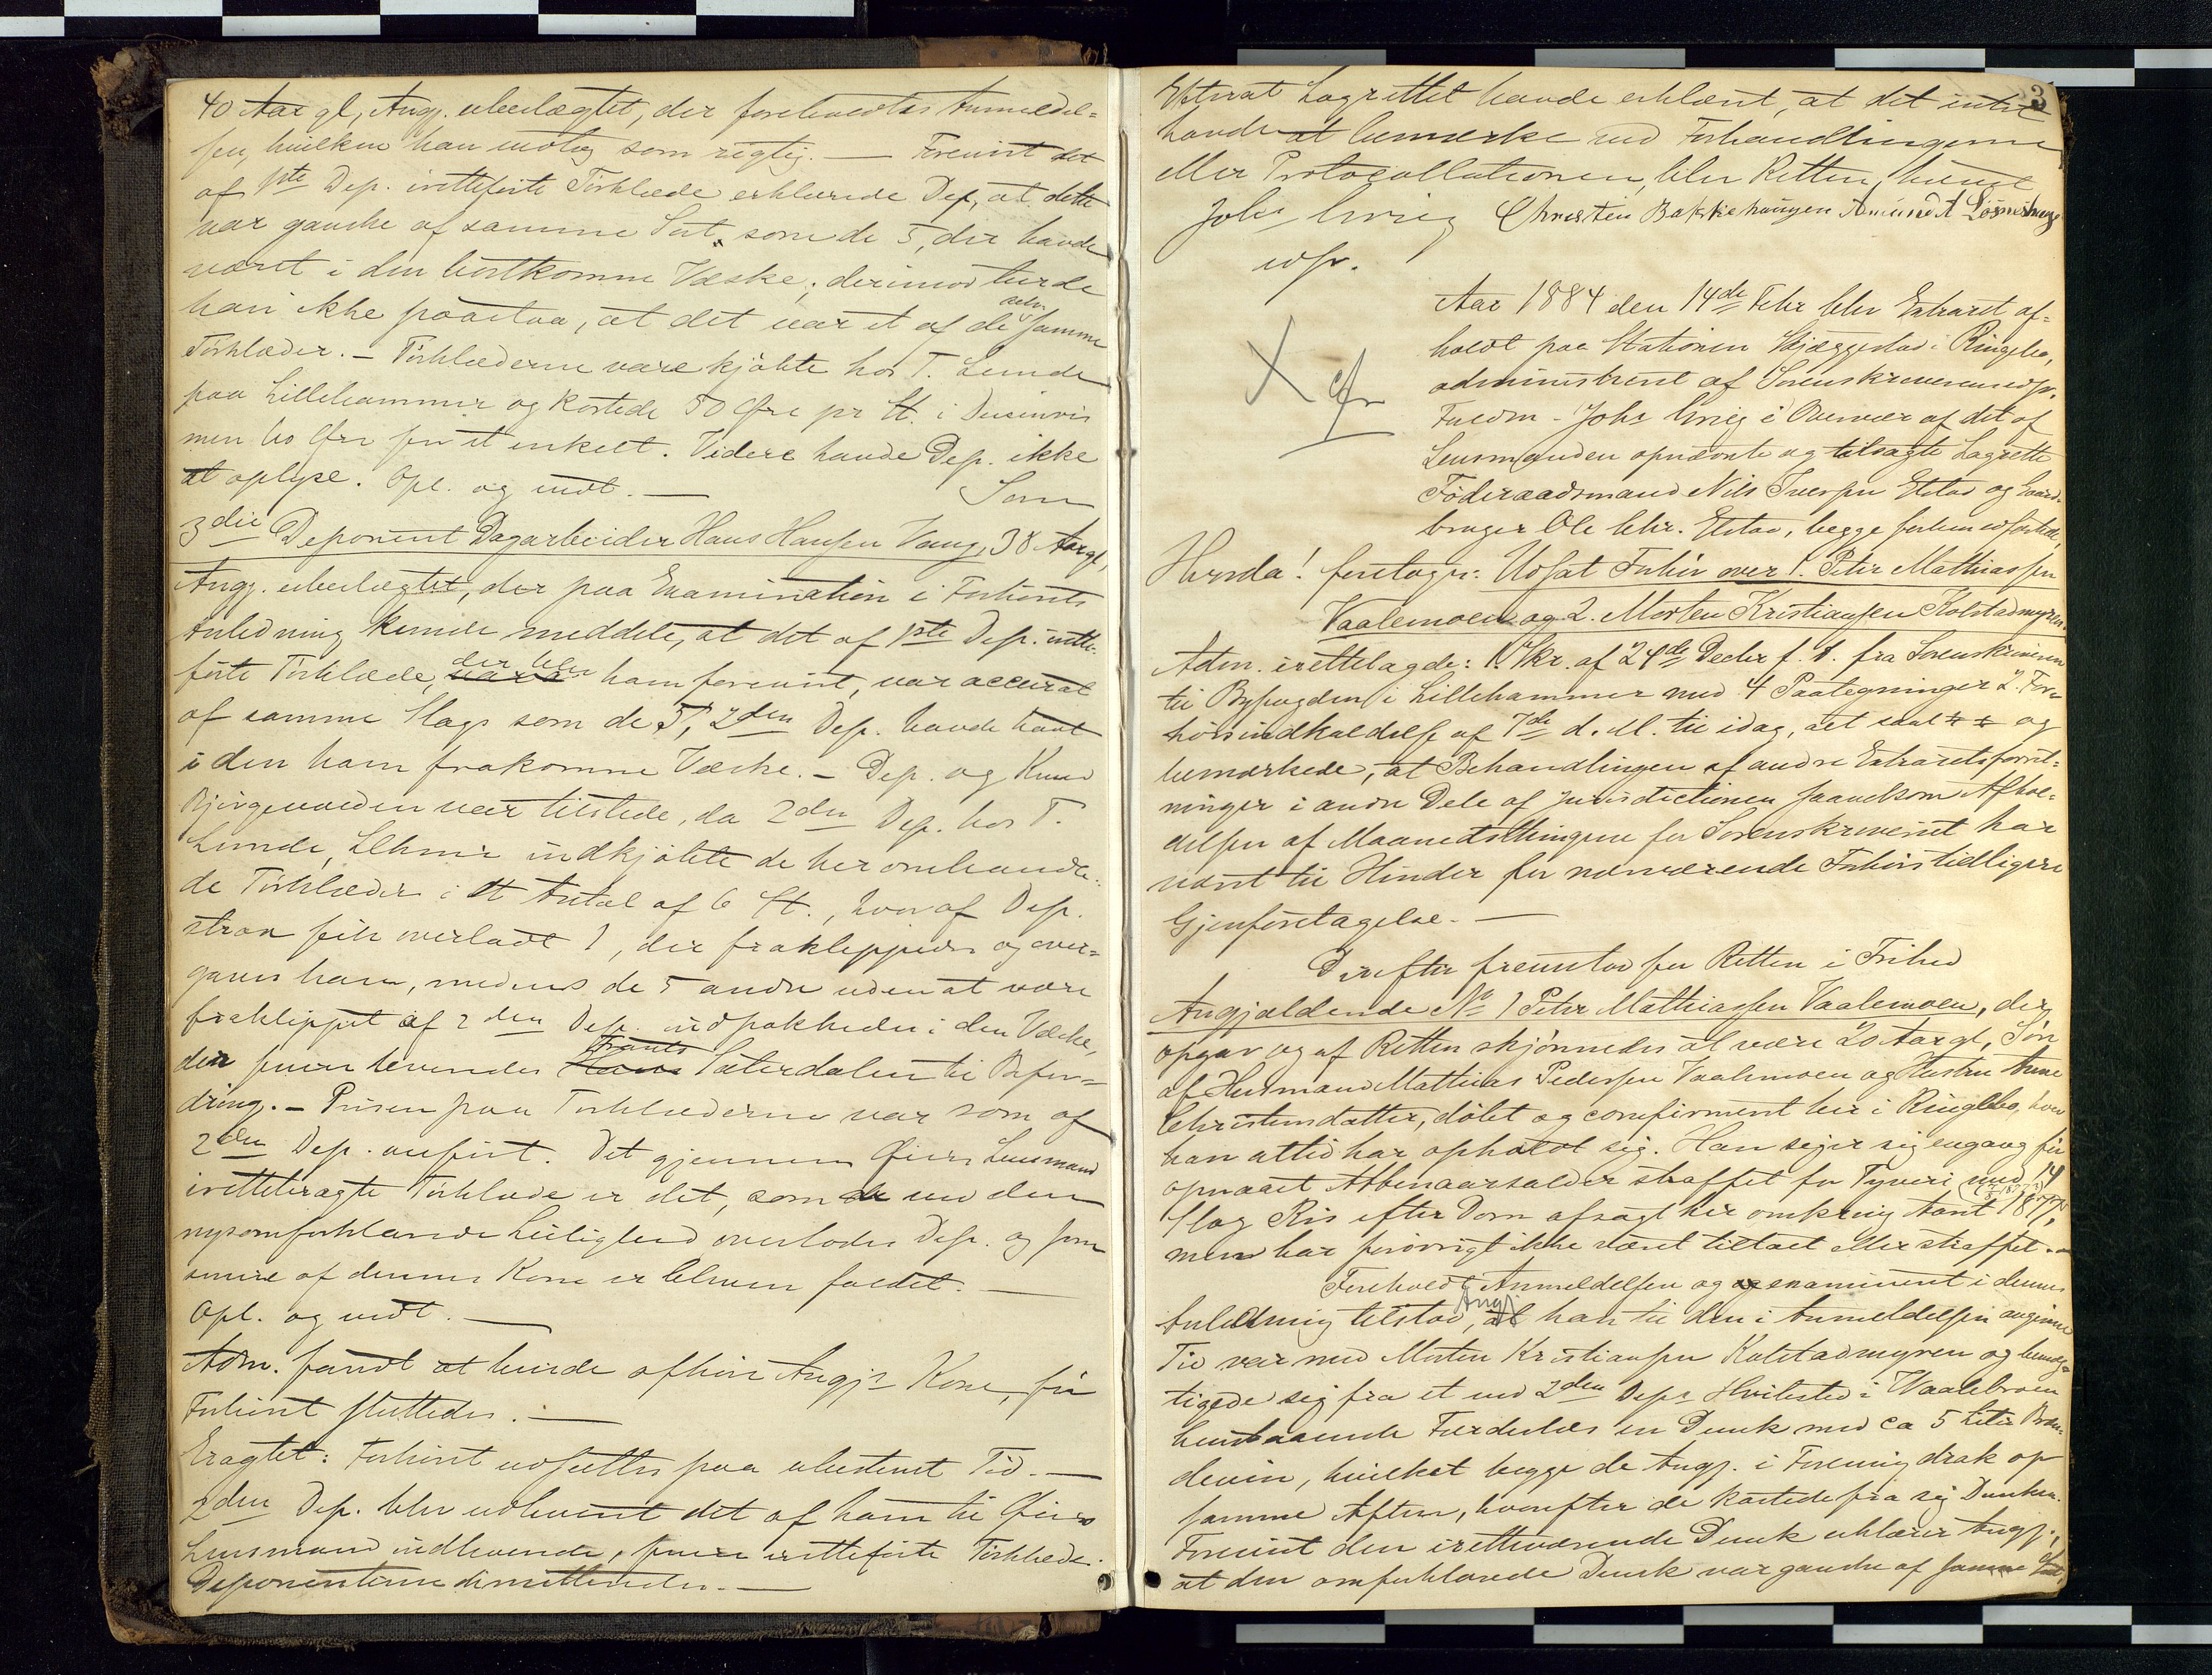 40 Aar gl, Angj. ubeslægtet, der foreholdtes Anmeldel=
sen, hvilken han vedtog som rigtig. — Forevist det
af 1ste Dep. iretteførte Tørklæde erklærede Dep, at dette
var ganske af samme Sort, som de 5, der havde
været i den bortkomne Væske; derimod turde
han ikke paastaa, at det var et af de selv samme
Tørklæder. – Tørklæderne vare kjøbte hos T. Lunde
paa Lillehammer og kostede 50 Øre pr St. i Dusinvis
men 60 Øre for et enkelt. Videre havde Dep. ikke
at oplyse. Opl. og vedt. — Som
3die Deponent Dagarbeider Hans Hansen Vang, 38 Aar gl,
Angj. ubeslægtet, der paa Examination i Forhørets
Anledning kunde meddele, at det af 1ste Dep. irette-
førte Tørklæde, der blev ham forevist, var accurat
af samme Slags som de 5, 2den Dep. havde havt
i den ham frakomne Væske. – Dep. og Knud
Bjørgemoeden var tilstede, da 2den Dep. hos T.
Lunde, Lllhmr indkjøbte de her omhandle-
de Tørklæder i et Antal af 6 St., hvoraf Dep.
strax fik overladt 1, der fraklippedes og over=
gaves ham, medens de 5 andre uden at være
fraklippet af 2den Dep. indpakkedes i den Væske,
der siden leveredes Frants Sæterdalen til Befor=
dring. – Prisen paa Tørklæderne var som af
2den Dep. anført. Det gjennem Øiers Lensmand
irettebragte Tørklæde er det, som ved den
nysomforklarede Leilighed overlodes Dep. og som
senere af dennes Kone er bleven faldet. —
Opl. og vedt. —
Adm. fandt at burde afhøre Angjs Kone, før
Forhøret sluttedes. —
Eragtet: Forhøret udsættes paa ubestemt Tid. —
2den Dep. blev udleveret det af ham til Øiers
Lensmand indleverede, senere iretteførte Tørklæde.
Deponenterne dimitteredes. —
3
Efterat Lagrettet havde erklæret, at det intet
havde at bemærke ved Forhandlingerne
eller Protocollationen, blev Retten hævet
Johs Grieg Christen Bakkehaugen Amund A Løsnehauge
edsv.
Aar 1884 den 14de Febr blev Extraret af=
holdt paa Stationen Skjæggestad i Ringebo,
administreret af Sorenskriverens edsv.
Fuldm. Johs Grieg i Overvær af det af
Lensmanden opnævnte og tilsagte Lagrette
Føderaadsmand Nils Iversen Elstad og Gaard-
bruger Ole Chr. Elstad, begge forhen edfæstede,
Hvorda! foretoges: Udsat Forhør over 1. Peter Mathiassen
Vaalemoen og 2. Morten Kristiansen Kolstadmyren.
Adm. irettelagde: 1. Skr. af 24de Decbr f. A. fra Sorenskriveren
til Byfogden i Lillehammer med 4 Paategninger 2. For=
hørsindkaldelse af 7de d. M. til idag, og
bemærkede, at Behandlingen af andre Extraretsforret=
ninger i andre Dele af Jurisdictionen saavelsom Afhol=
delsen af Maanedsthingene for Sorenskriveriet har
været til Hinder for nærværende Forhørs tidligere
Gjenforetagelse. —
Derefter fremstod for Retten i Frihed
Angjældende No 1 Peter Mathiassen Vaalemoen, der
opgav og af Retten skjønnedes at være 20 Aar gl, Søn
af Husmand Mathias Pedersen Vaalemoen og Hustru Anne
Christensdatter, døbt og confirmeret her i Ringebo, hvor
han altid har opholdt sig. Han siger sig engang før
opnaaet Attenaarsalder straffet for Tyveri med 14
Slag Ris efter Dom afsagt her omkring Aaret 1877,
men har forøvrigt ikke været tiltalt eller straffet. –
Foreholdt Anmeldelsen og examineret i dennes
Anledning tilstod Angj, at han til den i Anmeldelsen angivne
Tid var med Morten Kristiansen Kolstadmyren og bemæg=
tigede sig fra et ved 2den Deps Hvilested i Vaalebroen
henstaaende Færdeslæs en Dunk med ca 5 Liter Bræn=
devin, hvilket begge de Angj. i Forening drak op
samme Aften, hvorefter de kastede fra sig Dunken.
Forevist den iretteværende Dunk erklærer Angj.,
at den omforklarede Dunk var ganske af samme Sort,